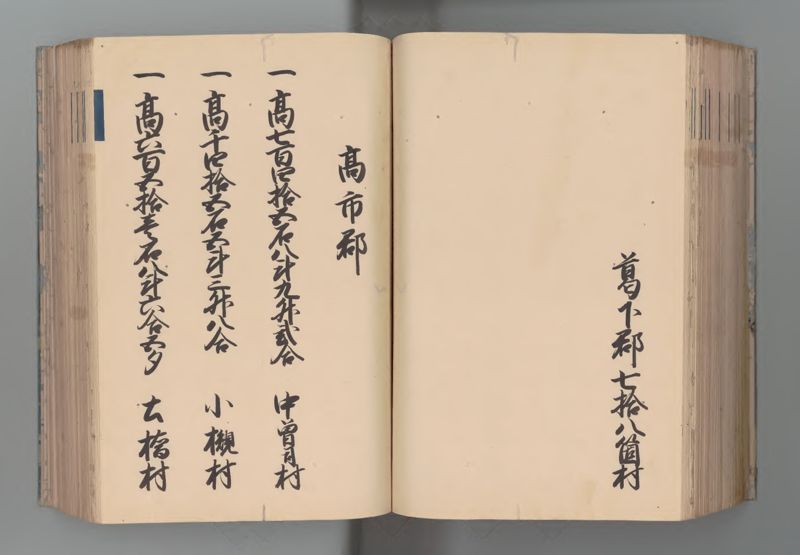 葛下郡七拾八箇村
髙市郡
一髙七百四拾五石八斗九升弐合 中曽司村
一髙千四拾五石五斗三升八合 小槻村
一髙六百五拾壱石八斗六合五夕 土橋村